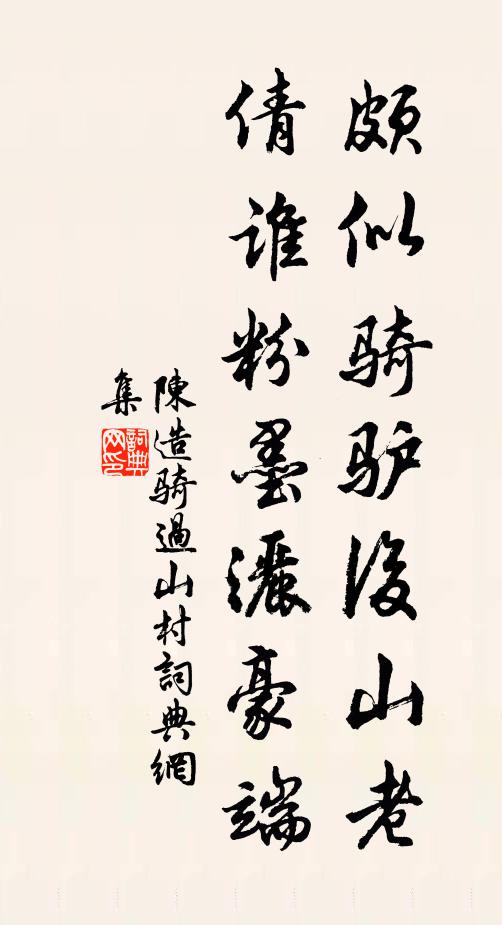 颇似骑驴后山老
倩谁粉墨灑豪端
陳造骑過山村詞典網
集
詞典
网印